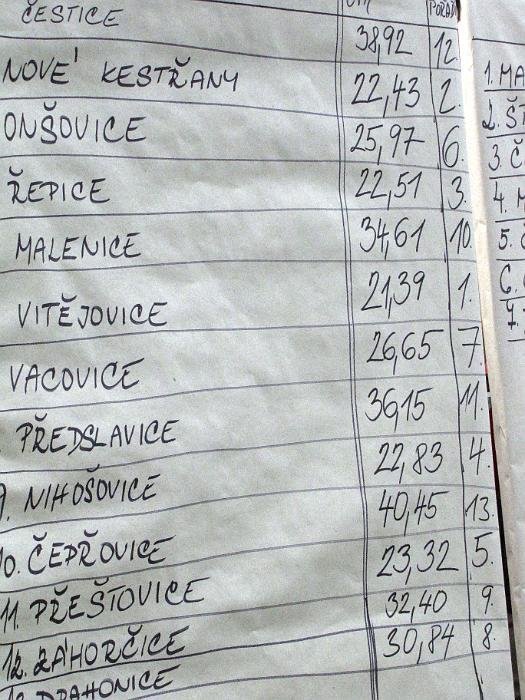 ČESTICE 38,92 12.
NOVE' KESTŘANY 22,43 2.
ONŠOVICE 25,97 6.
ŘEPICE 22,51 3.
MALENICE 34,61 10.
VITĚJOVICE 21,39 1.
VACOVICE 26,65 7.
PŘEDSLAVICE 36,15 11.
9. NIHOŠOVICE 22,83 4.
10. ČEPŘOVICE 40,45 13.
11. PŘEŠTOVICE 23,32 5.
12. ZÁHORČICE 32,40 9.
13. DRAHONICE 30,84 8.
1. MA
2. Š
3. Č
4. M
5.
6.
7.